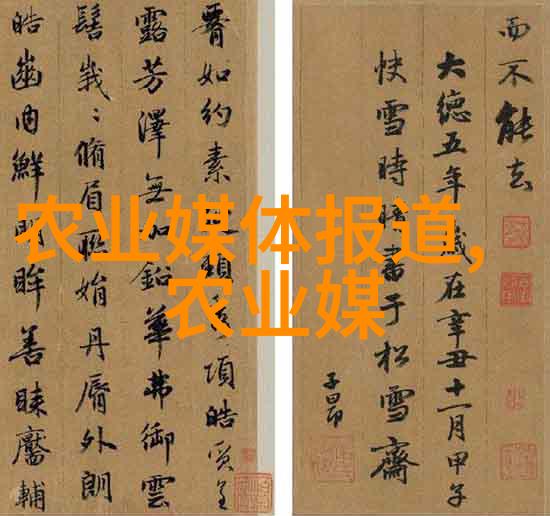 农业媒体报道,
农业媒
如約素頸項皓質呈
露芳澤無加鉛華弗御雲
髻峩〻脩眉聯娟丹脣外朗
皓齒內鮮明眸善睞靨輔
而不能去
大德五年歲在辛丑十一月甲子
快雪時晴書于松雪齋
子昂